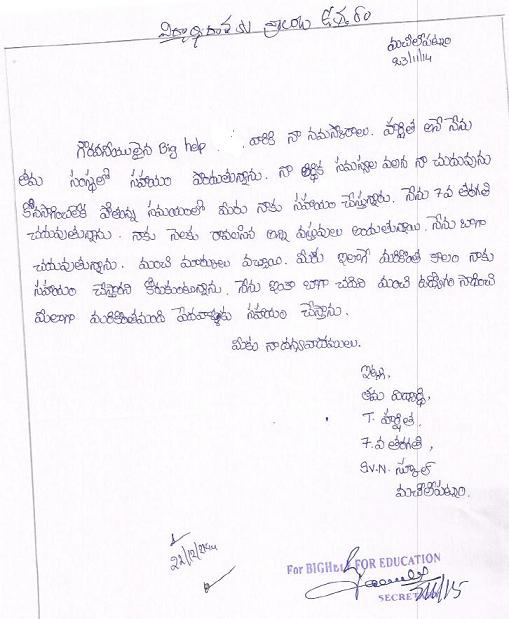 విద్యార్థి దాతకు వ్రాయు ఉత్తరం
మచిలీపట్నం
23/11/14
గౌరవనీయులైన Big help వారికి నా నమస్కారాలు. హర్షిత అనే నేను
తమ సంస్థలో సహాయం పొందుతున్నాను. నా ఆర్థిక సమస్యల వలన నా చదువును
కొనసాగించలేక పోతున్న సమయంలో మీరు నాకు సహాయం చేస్తున్నారు. నేను 7వ తరగతి
చదువుతున్నాను. నాకు నెలకు రావలసిన అన్ని వస్తువులు అందుతున్నాయి. నేను బాగా
చదువుతున్నాను. మంచి మార్కులు వచ్చాయి. మీరు ఇలాగే మరికొంత కాలం నాకు
సహాయం చేస్తారని కోరుకుంటున్నాను. నేను ఇంకా బాగా చదివి మంచి ఉద్యోగం సాధించి
మీలాగా మరికొంతమంది పేదవాళ్ళకు సహాయం చేస్తాను.
మీకు నా ధన్యవాదములు.
ఇట్లు,
తమ విద్యార్థి,
T. హర్షిత,
7.వ తరగతి,
S.V.N. స్కూల్
మచిలీపట్నం.
For BIGHELP FOR EDUCATION
SECRET